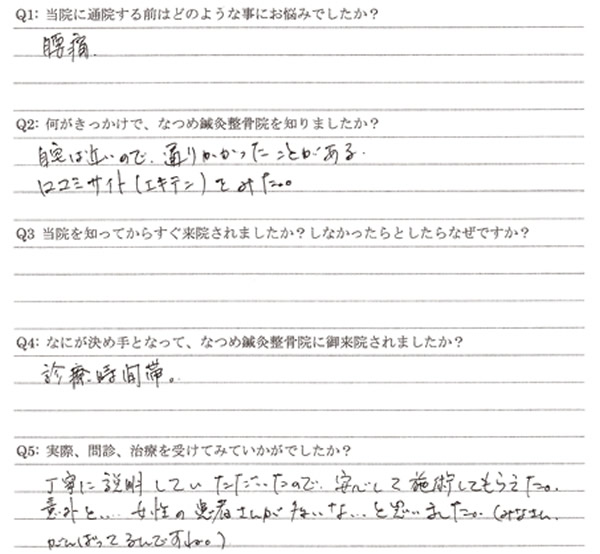 Q1: 当院に通院する前はどのような事にお悩みでしたか?
腰痛.
Q2: 何がきっかけで、なつめ鍼灸整骨院を知りましたか?
自宅は近いので、通りかかったことがある.
口コミサイト(エキテン)をみた。
Q3 当院を知ってからすぐ来院されましたか?しなかったらとしたらなぜですか?
Q4: なにが決め手となって、なつめ鍼灸整骨院に御来院されましたか?
診療時間帯。
Q5: 実際、問診、治療を受けてみていかがでしたか?
丁寧に説明していただいたので、安心して施術してもらえた。
意外と… 女性の患者さんが多いな…と思いました。(みなさん
がんばってるんですね。)